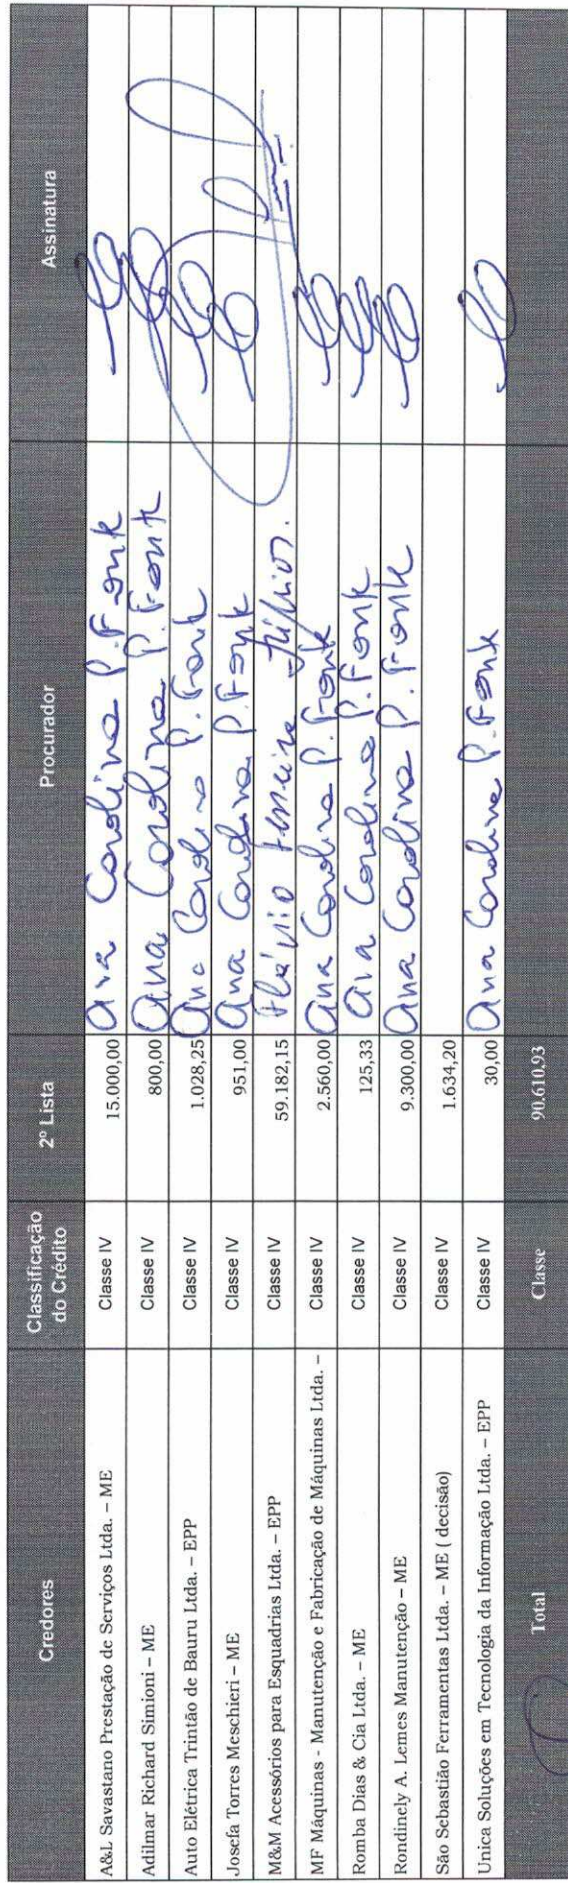 Credores Classificação do Crédito 2º Lista Procurador Assinatura
A&L Savastano Prestação de Serviços Ltda. – ME Classe IV 15.000,00 Ana Carolina P. Fonk
Adilmar Richard Simioni – ME Classe IV 800,00 Ana Carolina P. Fonk
Auto Elétrica Trintão de Bauru Ltda. – EPP Classe IV 1.028,25 Ana Carolina P. Fonk
Josefa Torres Meschieri – ME Classe IV 951,00 Ana Carolina P. Fonk
M&M Acessórios para Esquadrias Ltda. – EPP Classe IV 59.182,15 Flávio
MF Máquinas - Manutenção e Fabricação de Máquinas Ltda. – Classe IV 2.560,00 Ana Carolina P. Fonk
Romba Dias & Cia Ltda. – ME Classe IV 125,33 Ana Carolina P. Fonk
Rondinely A. Lemes Manutenção – ME Classe IV 9.300,00 Ana Carolina P. Fonk
São Sebastião Ferramentas Ltda. – ME ( decisão) 1.634,20
Unica Soluções em Tecnologia da Informação Ltda. – EPP Classe IV 30,00 Ana Carolina P. Fonk
Total Classe 90.610,93